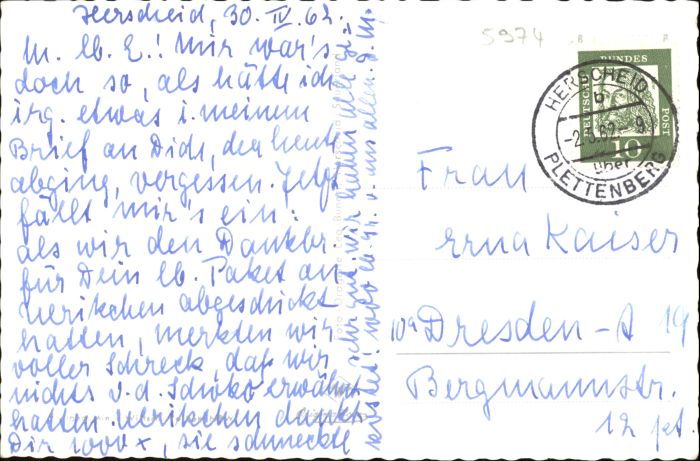 Herscheid, 30. IV. 62.
M. lb. E.! Mir war's
doch so, als hätte ich
irg. etwas i. meinem
Brief an Dich, der heute
abging, vergessen. Jetzt
fällt mir's ein:
als wir den Dankbr.
für Dein lb. Paket an
Uerikchen abgeschickt
hatten, merkten wir
voller Schreck, daß wir
nichts v. d. Schoko erwähnt
hatten. Uerikchen dankt
Dir 1000 x, sie schmeckte
sehr gut, wir haben alle ge-
kostet! 1000 lb. Gr. v. uns allen. D. M.
5974
DEUTSCHE BUNDESPOST
10
HERSCHEID
b
-2.5.62.-9
über
PLETTENBERG
Frau
Erna Kaiser
10a Dresden-A 19
Bergmannstr.
12 pt.